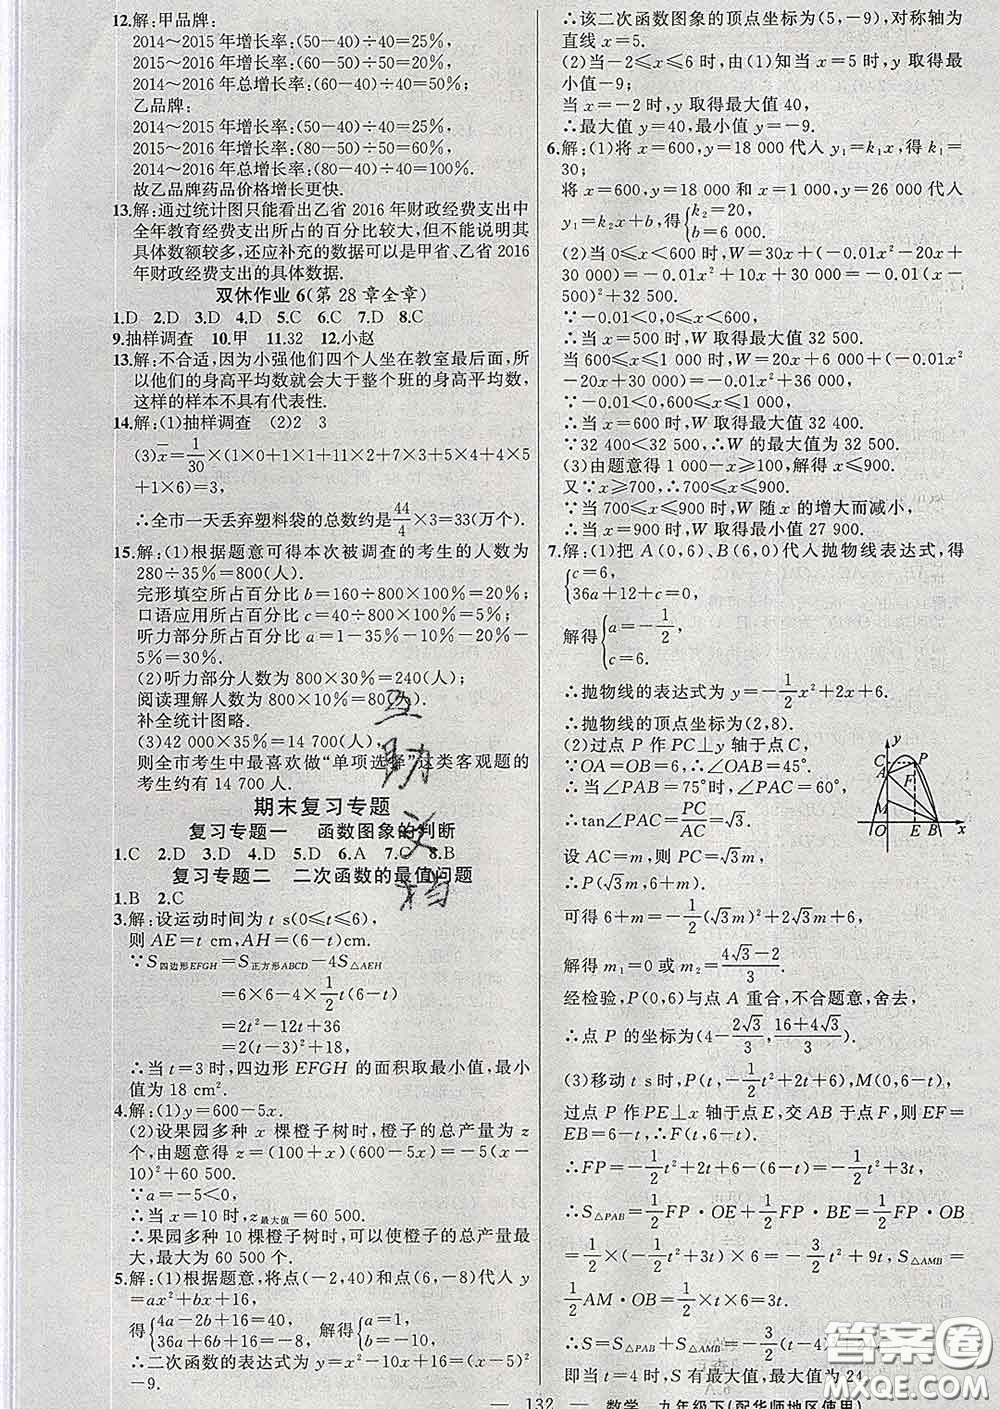 12.解:甲品牌:
2014～2015 年增长率:(50－40)÷40＝25%,
2015～2016 年增长率:(60－50)÷50＝20%,
2014～2016 年总增长率:(60－40)÷40＝50%.
乙品牌:
2014～2015 年增长率:(50－40)÷40＝25%,
2015～2016 年增长率:(80－50)÷50＝60%,
2014～2016 年总增长率:(80－40)÷40＝100%.
故乙品牌药品价格增长更快.
13.解:通过统计图只能看出乙省 2016 年财政经费支出中
全年教育经费支出所占的百分比较大,但不能说明其
具体数额较多,还应补充的数据可以是甲省、乙省 2016
年财政经费支出的具体数据.
双休作业 6(第 28 章全章)
1.D 2.D 3.D 4.D 5.C 6.C 7.D 8.C
9.抽样调查 10.甲 11.32 12.小赵
13.解:不合适,因为小强他们四个人坐在教室最后面,所
以他们的身高平均数就会大于整个班的身高平均数,
这样的样本不具有代表性.
14.解:(1)抽样调查 (2)2 3
(3)x̄＝1/30×(1×0＋1×1＋11×2＋7×3＋5×4＋4×5
＋1×6)＝3,
∴全市一天丢弃塑料袋的总数约是44/4×3＝33(万个).
15.解:(1)根据题意可得本次被调查的考生的人数为
280÷35%＝800(人).
完形填空所占百分比 b＝160÷800×100%＝20%;
口语应用所占百分比 c＝40÷800×100%＝5%;
听力部分所占百分比 a＝1－35%－10%－20%－
5%＝30%.
(2)听力部分人数为 800×30%＝240(人);
阅读理解人数为 800×10%＝80(人).
补全统计图略.
(3)42 000×35%＝14 700(人),
则全市考生中最喜欢做“单项选择”这类客观题的
考生约有 14 700 人.
期末复习专题
复习专题一 函数图象的判断
1.C 2.D 3.D 4.D 5.D 6.A 7.C 8.B
复习专题二 二次函数的最值问题
1.B 2.C
3.解:设运动时间为 t s(0≤t≤6),
则 AE＝t cm,AH＝(6－t)cm.
∵S四边形EFGH＝S正方形ABCD－4S△AEH
＝6×6－4×1/2t(6－t)
＝2t²－12t＋36
＝2(t－3)²＋18,
∴当 t＝3 时,四边形 EFGH 的面积取最小值,最小
值为 18 cm².
4.解:(1)y＝600－5x.
(2)设果园多种 x 棵橙子树时,橙子的总产量为 z
个,由题意得 z＝(100＋x)(600－5x)＝－5(x－
10)²＋60 500.
∵a＝－5＜0,
∴当 x＝10 时,z最大值＝60 500.
∴果园多种 10 棵橙子树时,可以使橙子的总产量最
大,最大为 60 500 个.
5.解:(1)根据题意,将点(－2,40)和点(6,－8)代入 y
＝ax²＋bx＋16,
得{4a－2b＋16＝40, 36a＋6b＋16＝－8, 解得{a＝1, b＝－10.
∴二次函数的表达式为 y＝x²－10x＋16＝(x－5)²
－9.
∴该二次函数图象的顶点坐标为(5,－9),对称轴为
直线 x＝5.
(2)当－2≤x≤6 时,由(1)知当 x＝5 时,y 取得最
小值－9;
当 x＝－2 时,y 取得最大值 40,
∴最大值 y＝40,最小值 y＝－9.
6.解:(1)将 x＝600,y＝18 000 代入 y₁＝k₁x,得 k₁＝
30;
将 x＝600,y＝18 000 和 x＝1 000,y＝26 000 代入
y₁＝k₂x＋b,得{k₂＝20, b＝6 000.
(2)当 0≤x＜600 时,W＝30x＋(－0.01x²－20x
＋30 000)＝－0.01x²＋10x＋30 000.
∵－0.01＜0,0≤x＜600,
∴当 x＝500 时,W 取得最大值 32 500.
当 600≤x≤1 000 时,W＝20x＋6 000＋(－0.01x²
－20x＋30 000)＝－0.01x²＋36 000.
∵－0.01＜0,600≤x≤1 000,
∴当 x＝600 时,W 取得最大值 32 400.
∵32 400＜32 500,∴W 的最大值为 32 500.
(3)由题意得 1 000－x≥100,解得 x≤900.
又∵x≥700,∴700≤x≤900.
∵当 700≤x≤900 时,W 随 x 的增大而减小,
∴当 x＝900 时,W 取得最小值 27 900.
7.解:(1)把 A(0,6)、B(6,0)代入抛物线表达式,得
{c＝6, 36a＋12＋c＝0,
解得{a＝－1/2, c＝6.
∴抛物线的表达式为 y＝－1/2x²＋2x＋6.
∴抛物线的顶点坐标为(2,8).
(2)过点 P 作 PC⊥y 轴于点 C,
∵OA＝OB＝6,∴∠OAB＝45°.
∴当∠PAB＝75°时,∠PAC＝60°,
∴tan∠PAC＝PC/AC＝√3.
设 AC＝m,则 PC＝√3m,
∴P(√3m,6＋m).
可得 6＋m＝－1/2(√3m)²＋2√3m＋6,
解得 m₁＝0 或 m₂＝(4√3－2)/3.
经检验,P(0,6)与点 A 重合,不合题意,舍去,
∴点 P 的坐标为(4－2√3/3,(16＋4√3)/3).
(3)移动 t s 时,P(t,－1/2t²＋2t＋6),M(0,6－t),
过点 P 作 PE⊥x 于点 E,交 AB 于点 F,则 EF＝
EB＝6－t,∴F(t,6－t).
∴FP＝－1/2t²＋2t＋6－(6－t)＝－1/2t²＋3t,
∴S△PAB＝1/2FP·OE＋1/2FP·BE＝1/2FP·OB
＝1/2×(－1/2t²＋3t)×6＝－3/2t²＋9t,S△AMB＝
1/2AM·OB＝1/2×t×6＝3t.
∴S＝S△PAB＋S△AMB＝－3/2(t－4)²＋24.
即当 t＝4 时,S 有最大值,最大值为 24.
y
C
P
A
F
M
O
E
B
x
互助文档
答案圈
— 132 — 数学 九年级下(配华师地区使用)